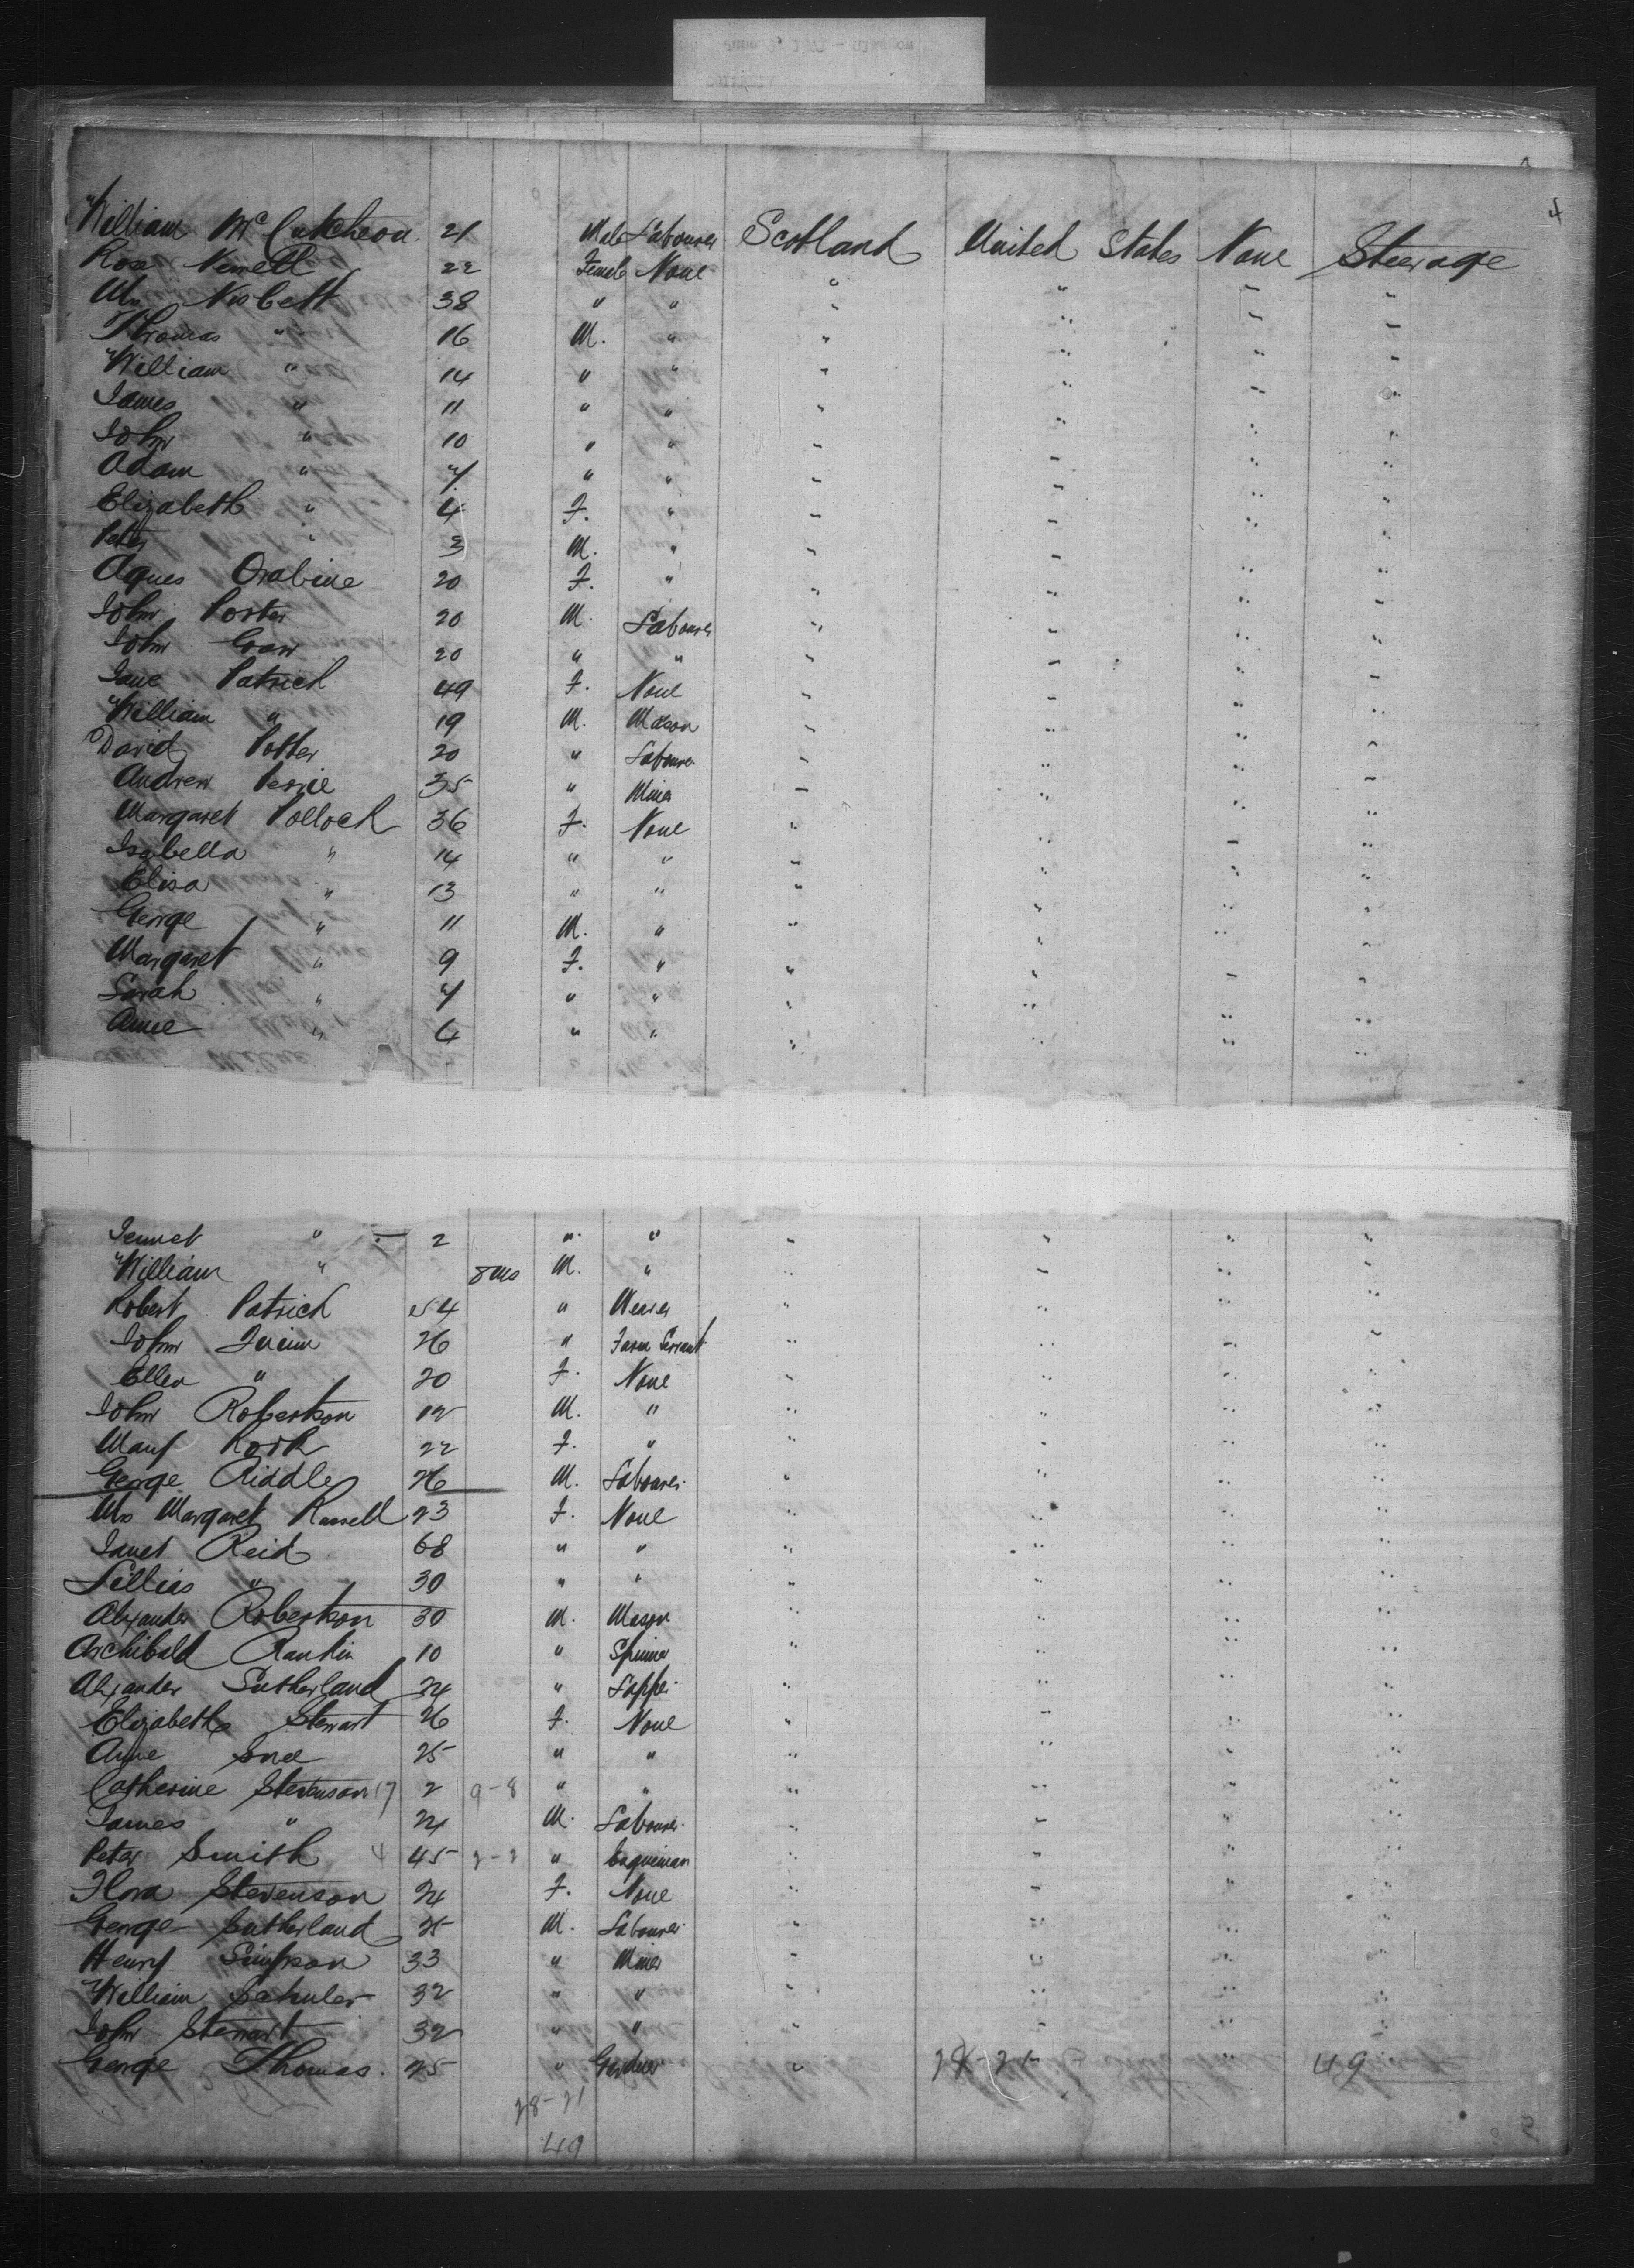 4
William McCutcheon 21 Male Labourer Scotland United States None Steerage
Rose 22 Female None " " " "
Mrs Nisbett 38 " " " " " "
Thomas " 16 M. " " " " "
William " 14 " " " " " "
James " 11 " " " " " "
John " 10 " " " " " "
Adam " 7 " " " " " "
Elizabeth " 4 F. " " " " "
Peter " 3 M. " " " " "
Agnes 20 F. " " " " "
John Porter 20 M. Labourer " " " "
John 20 " " " " " "
Jane Patrick 49 F. None " " " "
William " 19 M. Mason " " " "
David Potter 20 " Labourer " " " "
Andrew Perrie 35 " Miner " " " "
Margaret Pollock 36 F. None " " " "
Isabella " 14 " " " " " "
Elisa " 13 " " " " " "
George " 11 M. " " " " "
Margaret " 9 F. " " " " "
Sarah " 7 " " " " " "
Anne " " " " " " "
Jennet " 2 " " " " " "
William " 8 ms M. " " " " "
Robert Patrick 54 " Weaver " " " "
John 26 " Farm Servant " " " "
Ellen " 20 F. None " " " "
John Robertson 12 M. " " " " "
Mary 22 F. " " " " "
George Riddle 26 M. Labourer " " " "
Mrs Margaret Russell 23 F. None " " " "
Janet Reid 68 " " " " " "
Lillias " 30 " " " " " "
Alexander Robertson 30 M. Mason " " " "
Archibald Rankin 10 " Spinner " " " "
Alexander Sutherland 24 " " " " "
Elizabeth Stewart 26 F. None " " " "
Anne 25 " " " " " "
Catherine Stevenson 17 2 9-8 " " " " " "
James " 24 M. Labourer " " " "
Peter Smith 4 45 2-2 " " " " "
Flora Stevenson 24 F. None " " " "
George Sutherland 25 M. Labourer " " " "
Henry Simpson 33 " Miner " " " "
William Schuler 32 " " " " " "
John Stewart 32 " " " " " "
George Thomas 25 " Gardner " 28-21 " 49
28-21
49